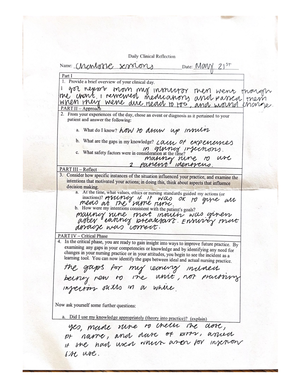 Daily Clinical Reflection
Name: Charlotte Date: May 21st
Part I
1. Provide a brief overview of your clinical day.
I got report from my instructor then went through
the chart, I reviewed medications and passed them
when they were due and wound change
PART II – Approach
2. From your experiences of the day, chose an event or diagnosis as it pertained to your
patient and answer the following:
a. What do I know? how to draw up insulin
b. What are the gaps in my knowledge? Lack of experiences
in giving injections
c. What safety factors were in consideration at the time?
making sure to use
2 patient identifiers.
PART III – Reflect
3. Consider how specific instances of the situation influenced your practice, and examine the
intentions that motivated your actions; in doing this, think about aspects that influence
decision making.
a. At the time, what values, ethics or nursing standards guided my actions (or
inactions)? making it was ok to give all
meds at the same time.
b. How were my intentions consistent with the patient's goals?
making sure that insulin was given
after eating breakfast. Ensuring that
dosage was correct.
PART IV – Critical Phase
4. In the critical phase, you are ready to gain insight into ways to improve future practice. By
examining any gaps in your competencies or knowledge and by identifying any need for
changes in your nursing practice or in your attitudes, you begin to see the incident as a
learning tool. You can now identify the gaps between ideal and actual nursing practice.
The gaps for my being
being new to the unit, not practicing
injection skills in a while.
Now ask yourself some further questions:
a. Did I use my knowledge appropriately (theory into practice)? (explain)
Yes, made sure to check the dose,
pt name, and date of birth, asked
if she had used which area for injection
site use.